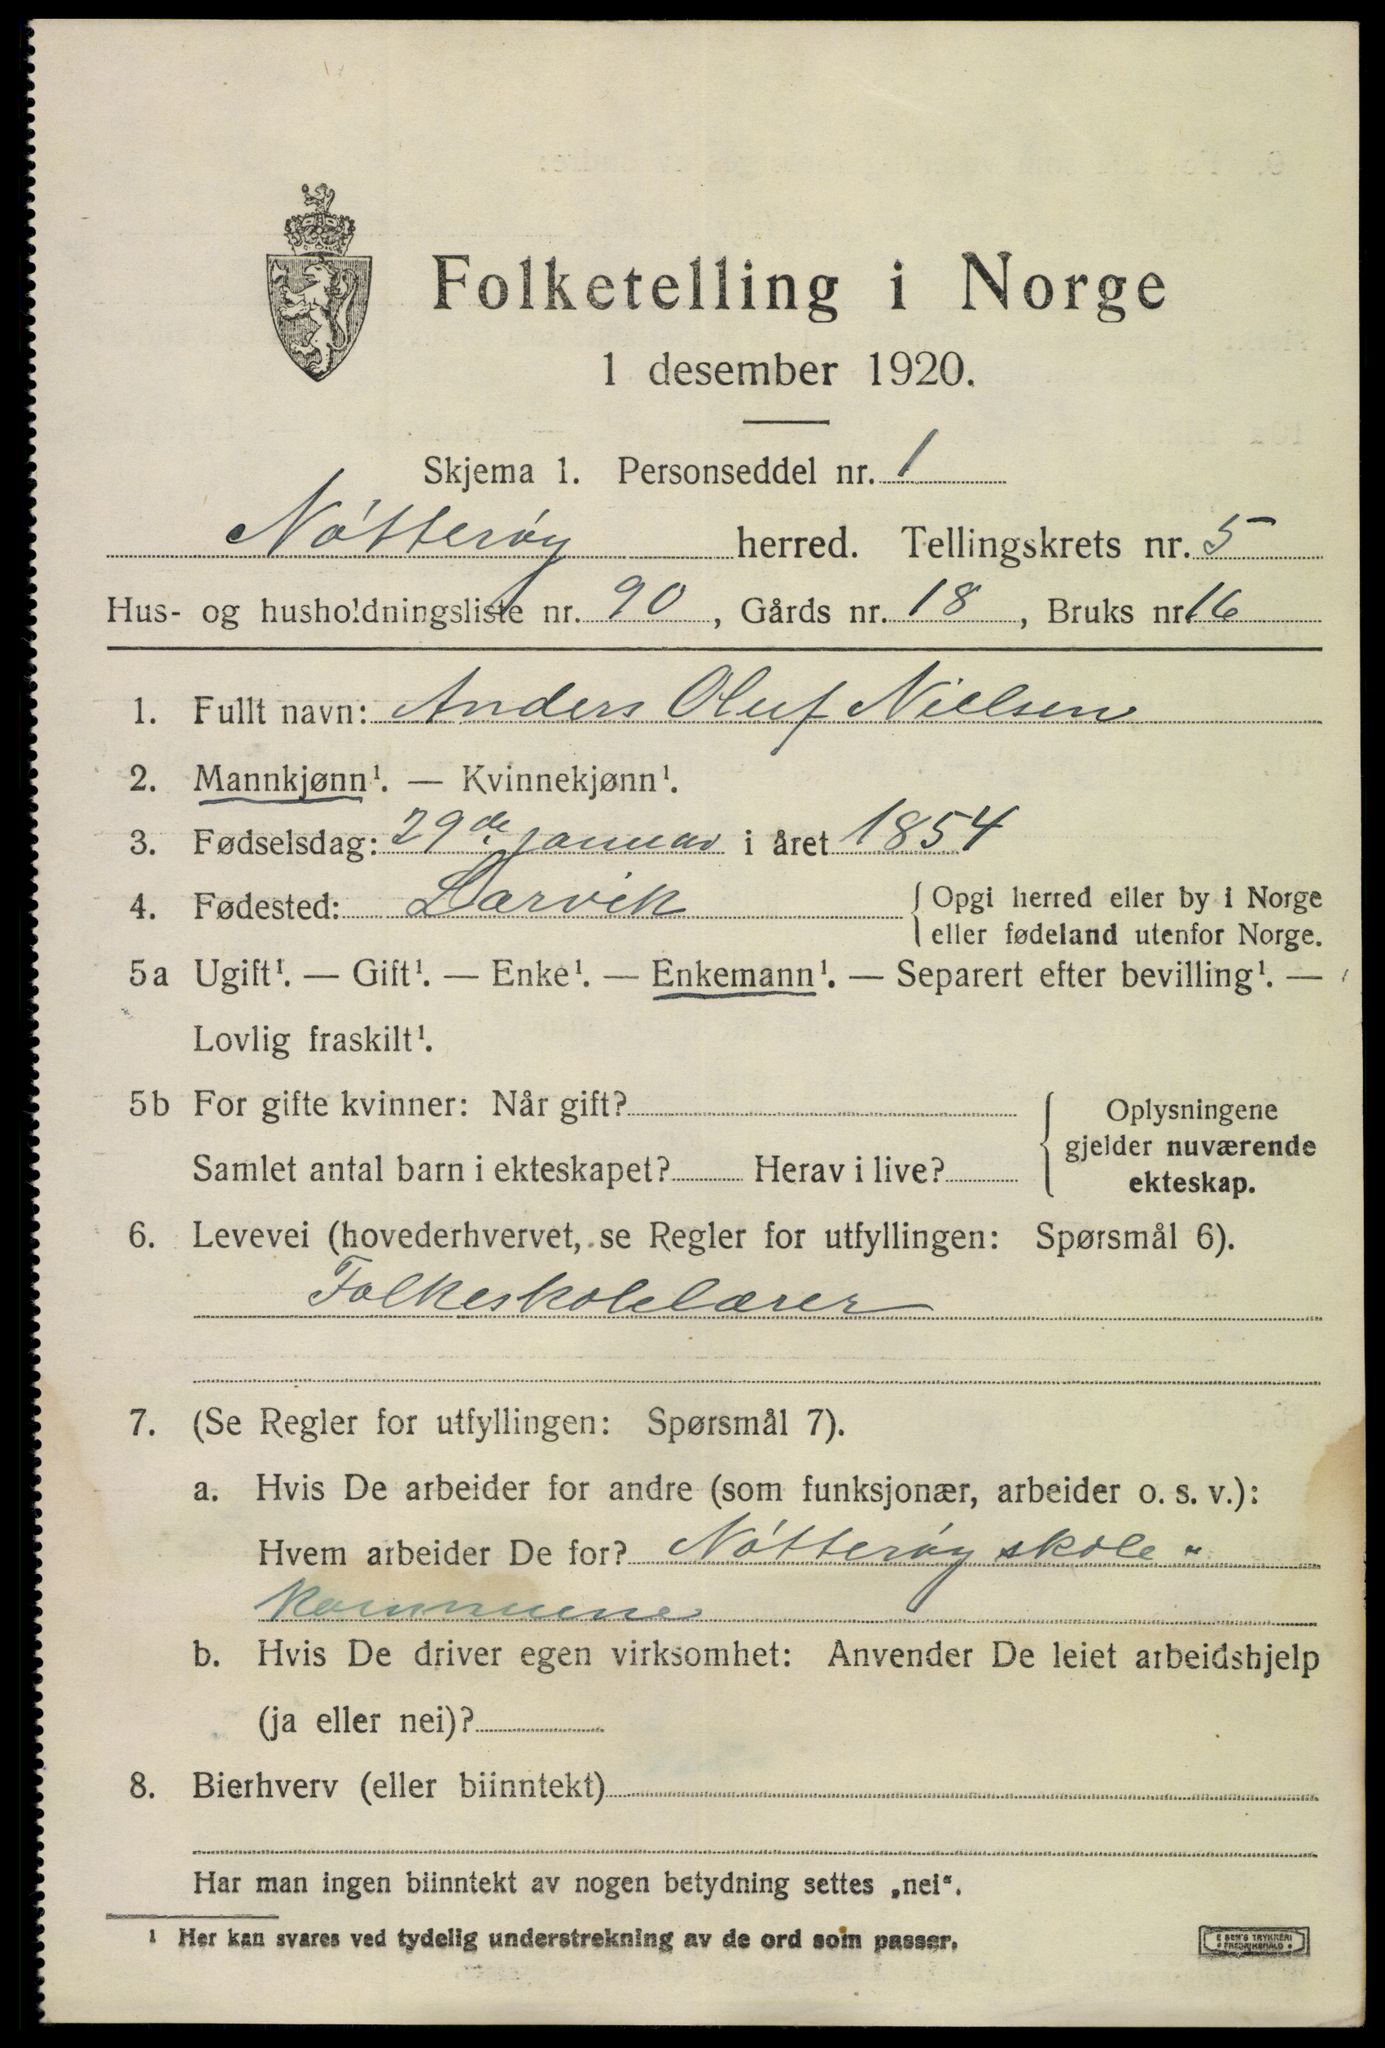 Folketelling i Norge
1 desember 1920.
Skjema 1. Personseddel nr. 1
Nótteróy herred. Tellingskrets nr. 5
Hus- og husholdningsliste nr. 90, Gårds nr. 18, Bruks nr. 16
1. Fullt navn: Anders Oluf Nielsen
2. Mannkjønn¹. — Kvinnekjønn¹.
3. Fødselsdag: 29de januar i året 1854
4. Fødested: Larvik { Opgi herred eller by i Norge
eller fødeland utenfor Norge.
5a Ugift¹. — Gift¹. — Enke¹. — Enkemann¹. — Separert efter bevilling¹. —
Lovlig fraskilt¹.
5b For gifte kvinner: Når gift?
Samlet antal barn i ekteskapet? Herav i live?
{ Oplysningene
gjelder nuværende
ekteskap.
6. Levevei (hovederhvervet, se Regler for utfyllingen: Spørsmål 6).
Folkeskolelærer
7. (Se Regler for utfyllingen: Spørsmål 7).
a. Hvis De arbeider for andre (som funksjonær, arbeider o. s. v.):
Hvem arbeider De for? Nótteróy skole-
kommune
b. Hvis De driver egen virksomhet: Anvender De leiet arbeidshjelp
(ja eller nei)?
8. Bierhverv (eller biinntekt)
Har man ingen biinntekt av nogen betydning settes „nei“.
¹ Her kan svares ved tydelig understrekning av de ord som passer.
TRYKKERI
FREDRIKSHALD